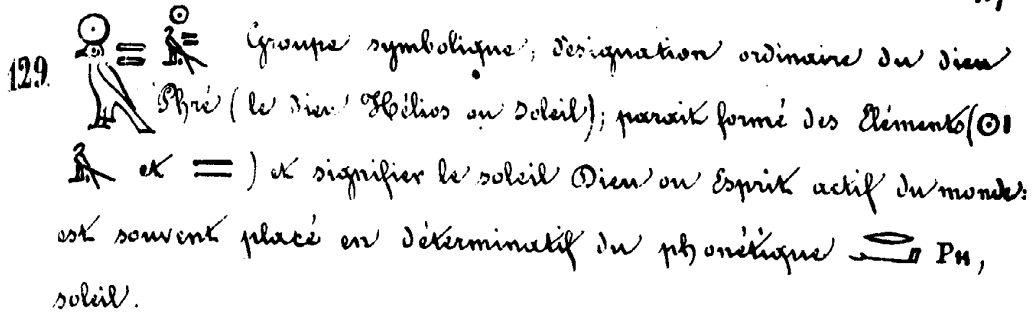 129. Groupe symbolique, désignation ordinaire du dieu
Phré (le dieu Hélios ou soleil); parait formé des Eléments (
et ) et signifier le soleil Dieu ou Esprit actif du monde:
est souvent placé en déterminatif du phonétique Ρн,
soleil.